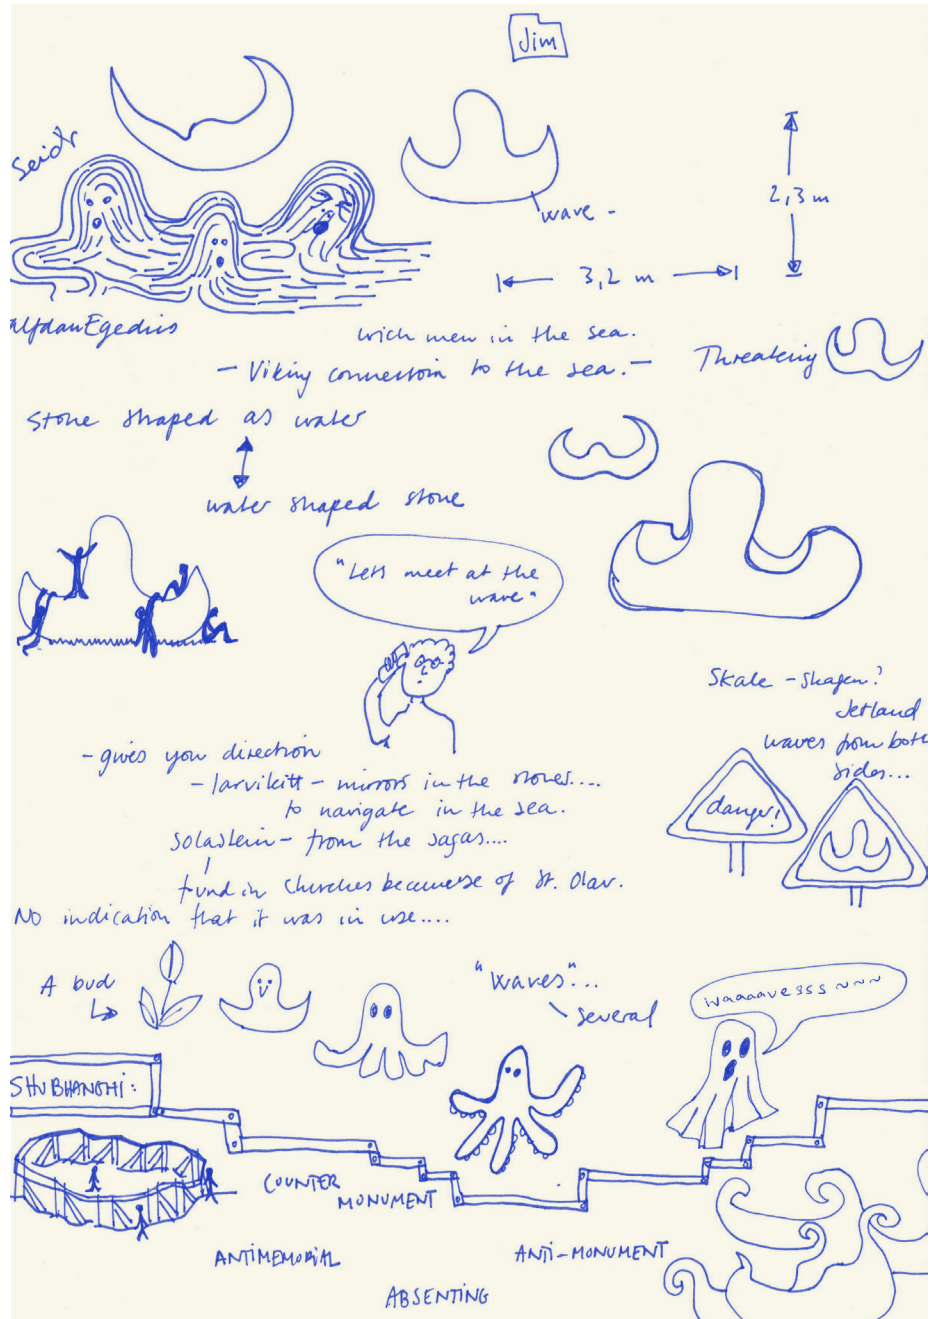 Jim
Seidr
wave -
2,3 m
3,2 m
alfdanEgedius
wich men in the sea.
- Viking connectoin to the sea. -
Threatking
Stone shaped as water
water shaped stone
"Lets meet at the
wave"
Skale - skagen?
Jetland
waves from both
sides...
- gives you direction
- larvikitt - mirrors in the stones....
to navigate in the sea.
Solastein - from the sagas....
fund in churches becauerse of St. Olav.
No indication that it was in use....
danger!
A bud
"Waves"...
several
waaaavesss ~~~~
SHUBHANGHI:
COUNTER
MONUMENT
ANTIMEMORIAL
ANTI-MONUMENT
ABSENTING